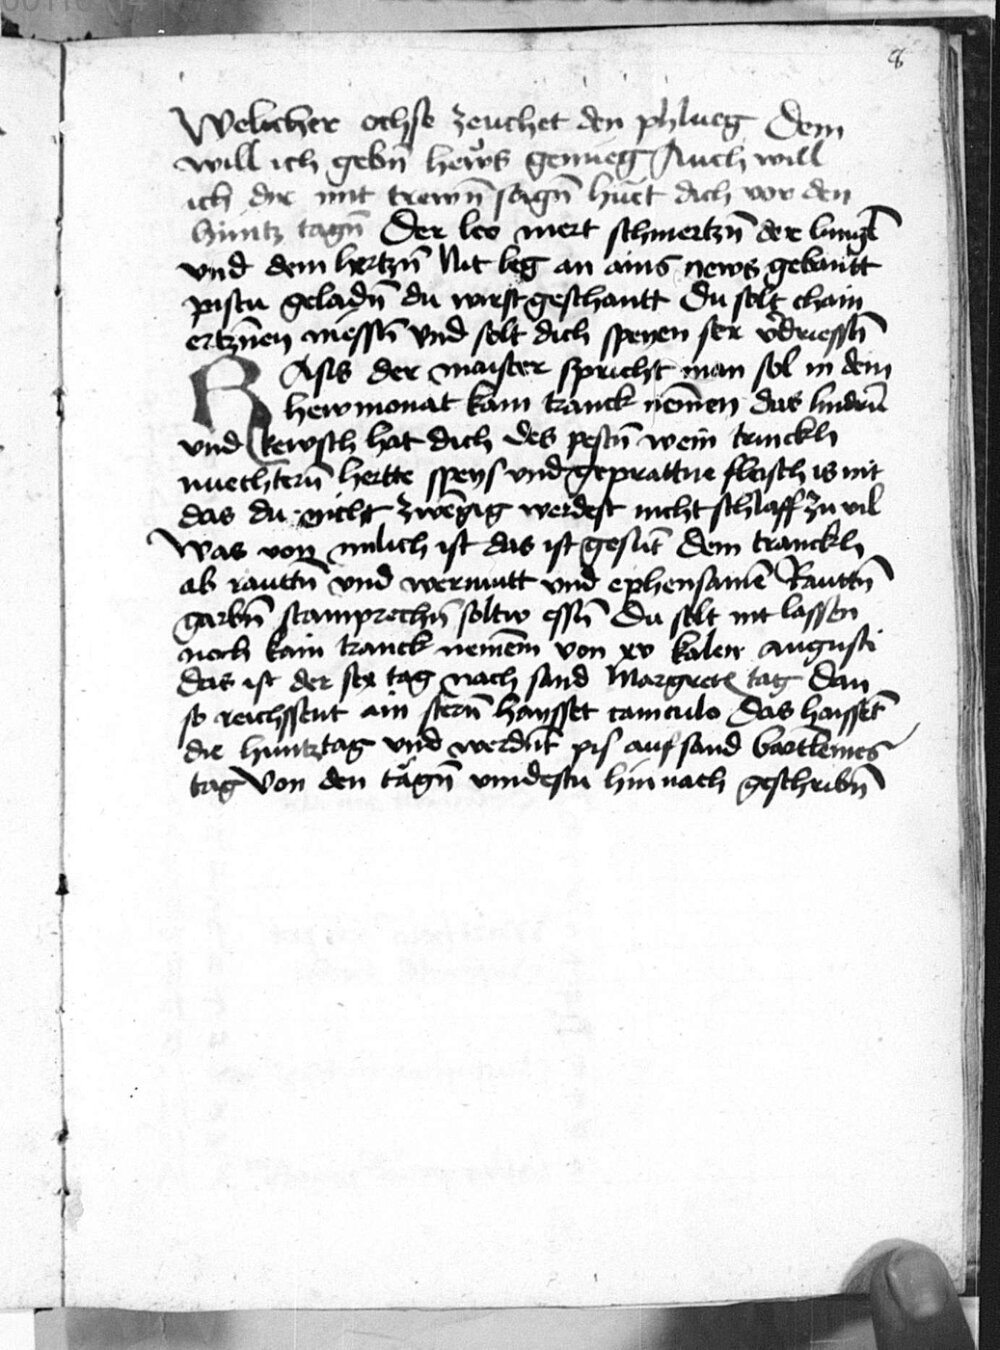 8
Welicher ochse zeuchet den phlueg Dem
will ich gebn̄ hews genueg Auch will
ich dir mit trewn̄ sagn̄ huet dich vor den
huntz tagn̄ Der leo mert schmertzn̄ der lungē
vnd dem hertzn̄ Nit leg an ains news gebantt
pistu geladn̄ du wirst geschantt Du solt chain
ertzney niessn̄ vnd solt dich speyen ser v̄driessn̄
RAsis der maister spricht man sol in dem
hewmonat kain tranck nemen das lindrū
vnd kewsch hat dich des pestn̄ wein trinckh
nuechtern̄ hertte speys vnd geprattne fleisch is nit
das du nicht werdest nicht schlaff zu vil
Was von milich ist das ist gesūt dem tranckh
ab rauttn̄ vnd wermutt vnd ephensamē Rauttn̄
garbn̄ soltw essn̄ Du solt nit lassen
noch kain tranck nemem von xv kalen augusti
das ist der sex tag nach sand Margrete tag Dan
so reichssent ain stern̄ haysset caniculo das haissēt
die huntztag vnd werdn̄t pis auf sand bartlemes
tag Von den tāgn̄ vindestu hin nach geschribn̄